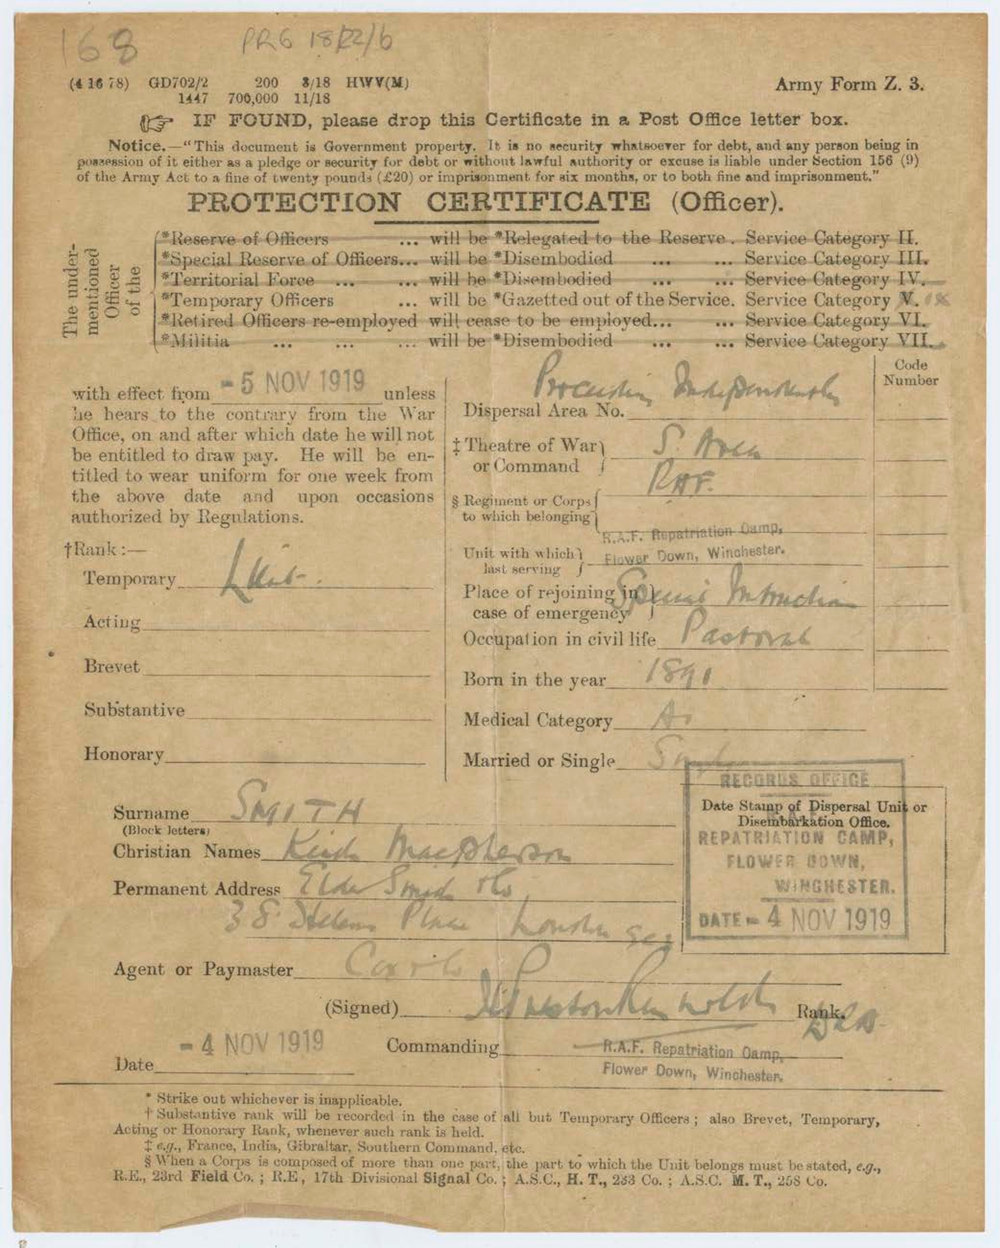 168 PRG 18/22/6
(4 16 78) GD702/2 200 3/18 HWV(M)
1447 700,000 11/18
Army Form Z. 3.
IF FOUND, please drop this Certificate in a Post Office letter box.
Notice.—"This document is Government property. It is no security whatsoever for debt, and any person being in
possession of it either as a pledge or security for debt or without lawful authority or excuse is liable under Section 156 (9)
of the Army Act to a fine of twenty pounds (£20) or imprisonment for six months, or to both fine and imprisonment."
PROTECTION CERTIFICATE (Officer).
The under-mentioned Officer of the
*Reserve of Officers ... will be *Relegated to the Reserve. Service Category II.
*Special Reserve of Officers... will be *Disembodied ... ... Service Category III.
*Territorial Force ... ... will be *Disembodied ... ... Service Category IV.
*Temporary Officers ... will be *Gazetted out of the Service. Service Category V.
*Retired Officers re-employed will cease to be employed... ... Service Category VI.
*Militia ... ... ... will be *Disembodied ... ... Service Category VII.
with effect from - 5 NOV 1919 unless
he hears to the contrary from the War
Office, on and after which date he will not
be entitled to draw pay. He will be en-
titled to wear uniform for one week from
the above date and upon occasions
authorized by Regulations.
†Rank :—
Temporary Lieut.
Acting
Brevet
Substantive
Honorary
Code
Number
Proceeding Independently
Dispersal Area No.
‡ Theatre of War
or Command
S. Area
RAF.
§ Regiment or Corps
to which belonging
R.A.F. Repatriation Camp,
Unit with which
last serving
Flower Down, Winchester.
Place of rejoining in
case of emergency
Special Instruction
Occupation in civil life Pastoral
Born in the year 1890
Medical Category A
Married or Single Single
Surname SMITH
(Block letters)
Christian Names Keith Macpherson
Permanent Address Elder Smith & Co
3 St Helens Place London EC3
Agent or Paymaster Cox & Co
RECORDS OFFICE
Date Stamp of Dispersal Unit or
Disembarkation Office.
REPATRIATION CAMP,
FLOWER DOWN,
WINCHESTER.
DATE - 4 NOV 1919
(Signed) Rank.
- 4 NOV 1919
Date
Commanding R.A.F. Repatriation Camp,
Flower Down, Winchester.
* Strike out whichever is inapplicable.
† Substantive rank will be recorded in the case of all but Temporary Officers ; also Brevet, Temporary,
Acting or Honorary Rank, whenever such rank is held.
‡ e.g., France, India, Gibraltar, Southern Command, etc.
§ When a Corps is composed of more than one part, the part to which the Unit belongs must be stated, e.g.,
R.E., 23rd Field Co. ; R.E, 17th Divisional Signal Co. ; A.S.C., H. T., 233 Co. ; A.S.C. M. T., 258 Co.